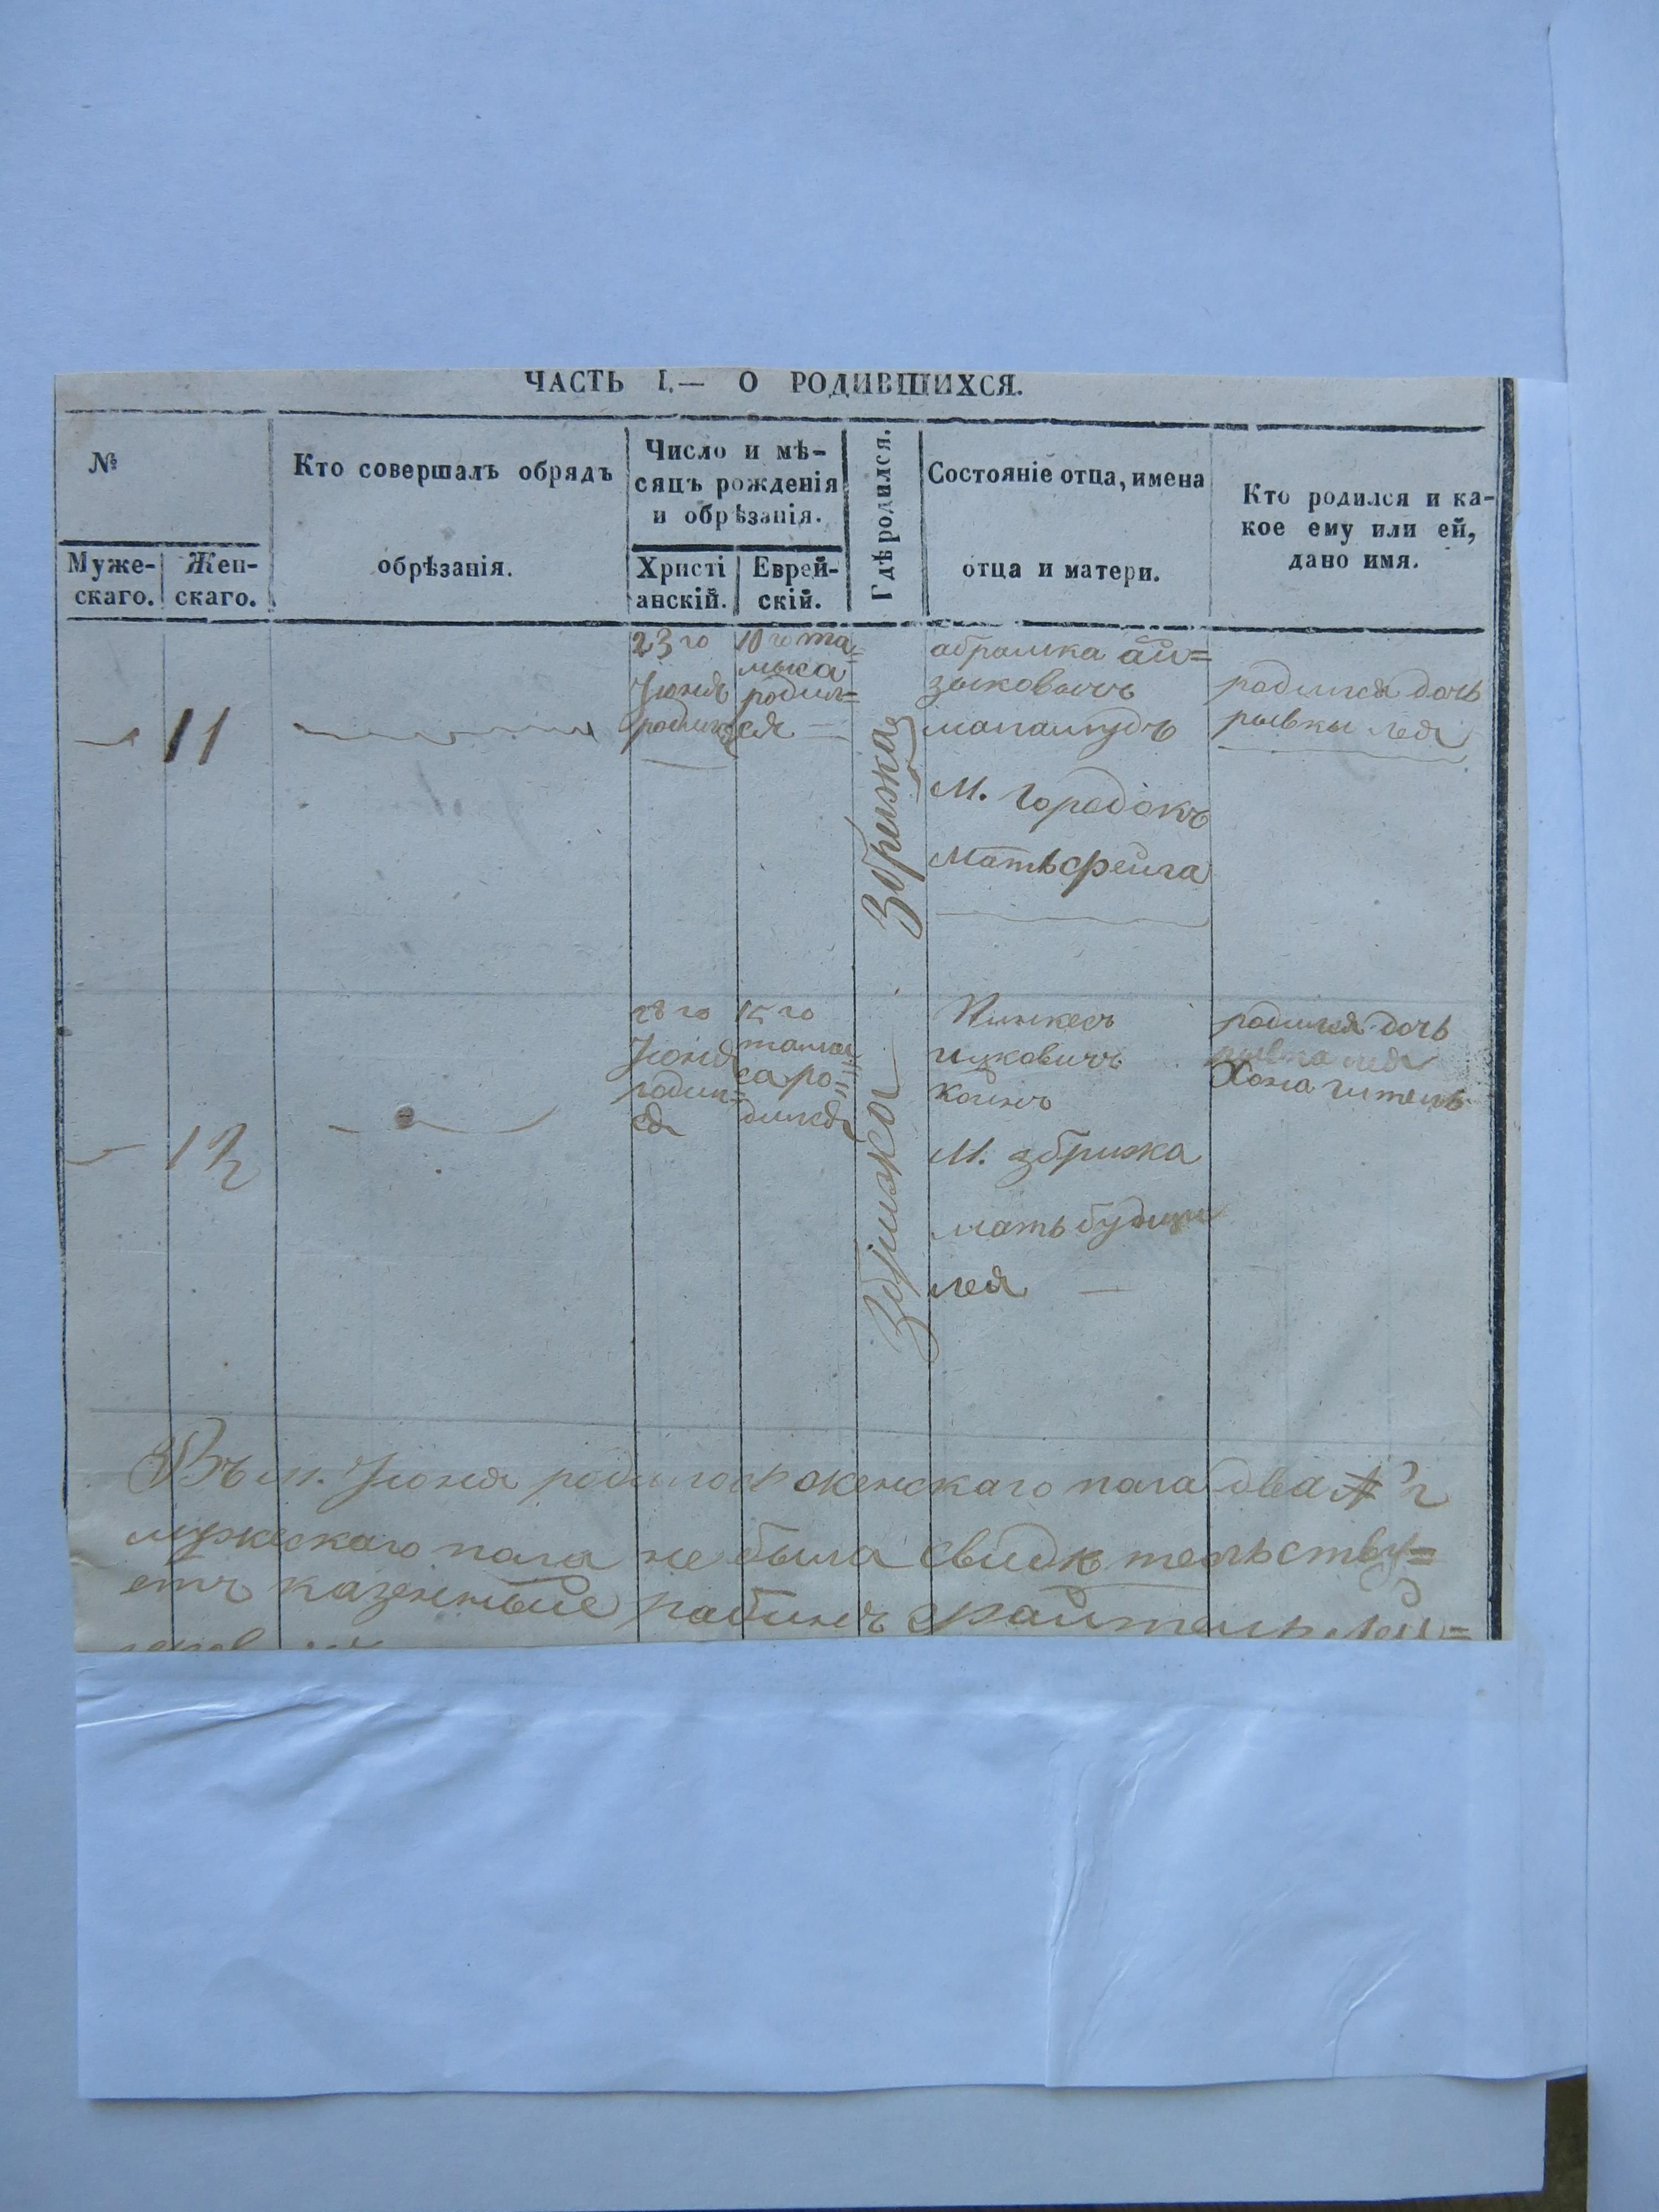 ЧАСТЬ I.— О РОДИВШИХСЯ.
№
Муже-
скаго.
Жен-
скаго.
Кто совершалъ обрядъ
обрѣзанія.
Число и мѣ-
сяцъ рожденія
и обрѣзанія.
Христі
анскій.
Еврей-
скій.
Гдѣ родился.
Состояніе отца, имена
отца и матери.
Кто родился и ка-
кое ему или ей,
дано имя.
11
23 го
Юоня
родился
10 го та=
мыса
родил=
ся —
Збрижка
абрамка ай=
зыковичъ
м. городокъ
мать фейга
родился дочь
рывкы лея
12
28 го
Июня
родил=
ся
15 го
тамы
са ро=
дился
Збрижка
Пинкесъ
ицковичъ
коинъ
м. збрижка
мать будици
лея —
родился дочь
рывка лея
Хона гитель
Въ м. Июня родилось женскаго пола два № 2
мужескаго пола не была свидѣтельству=
етъ казенные рабинъ